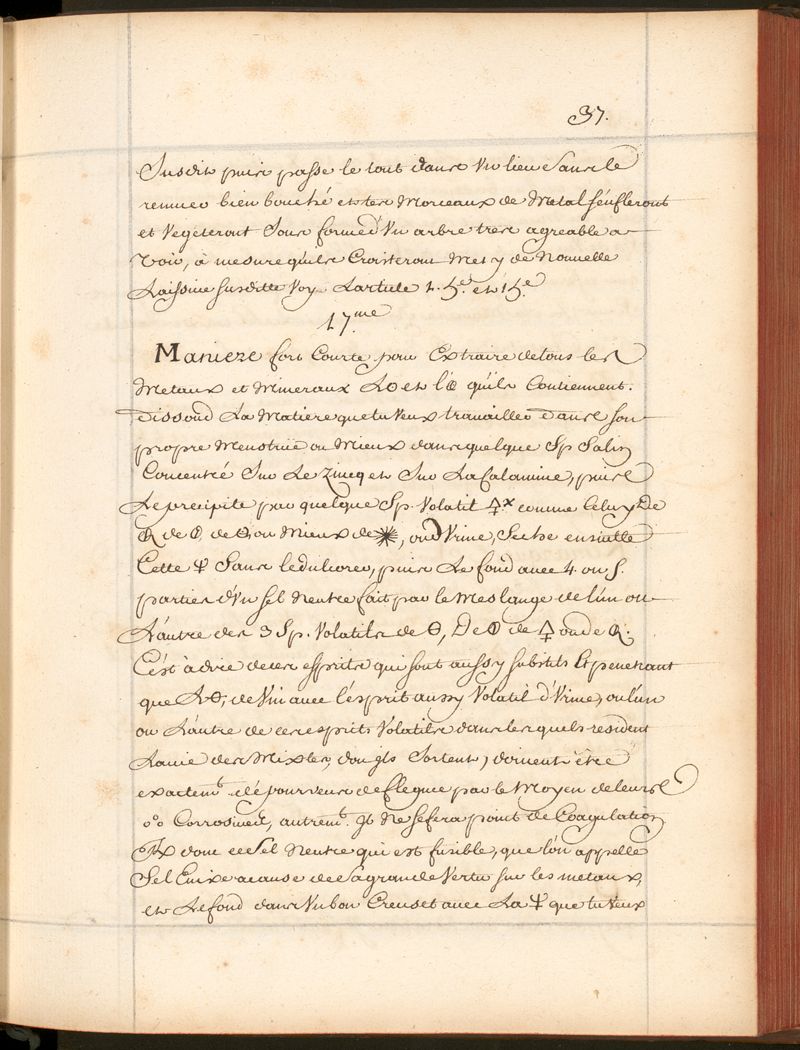 37.
Susdit puis passe le tout dans Un lieu Sans le
remuer bien bouché et les Morceaux de Metal s'énfleront
et Vegeteront Sous forme d'Un arbre tres agreable a
Voir, à mesure qu'ils Croisteront Mets y de Nouvelle
Laissive Susditte Voy Lartile 4. 5.e et 15.e
17.me
Maniere fort Courte pour Extraire de tous les
Metaux et Mineraux Lo et l'é qu'ils Contiennent.
Dissoud La Matiere que tu Veux travailler Dans son
propre Menstrüe ou Mieux dans quelque Sp Salin
Concentré Sur Le Zinq et Sur La Calamine, puis
Le precipite par quelque Sp. Volatil 🜍x comme Celuy De
de de ou Mieux de ✴, ou d'Urine, Seche ensuitte
Cette Sans ledulcorer, puis Le fond avec 4. ou 5.
parties d'Un Sel Neutre fait par le Meslange de l'un ou
L'autre des 3 Sp. Volatils de 🜔, De de ou de
C'ést à dire de ces esprits qui sont aussy subtils Et penetrant
que de Vin avec l'ésprit aussy Volatil d'Urine, ou l'un
ou L'autre de ces esprits Volatils dans lesquels resident
Lamie des Mixtes, dou jls Sortent, doivent être
exactem.t dépourveus de flegme par le Moyen de leurs
o°o Corrosives, autrem.t jl Ne se fera point de Coagulation
donc ce Sel Neutre qui est fusible, que l'on appelle
Sel Enixe acause de Sa grande Vertu sur les metaux,
et Le fond dans Un bon Creuset avec La que tu Veux